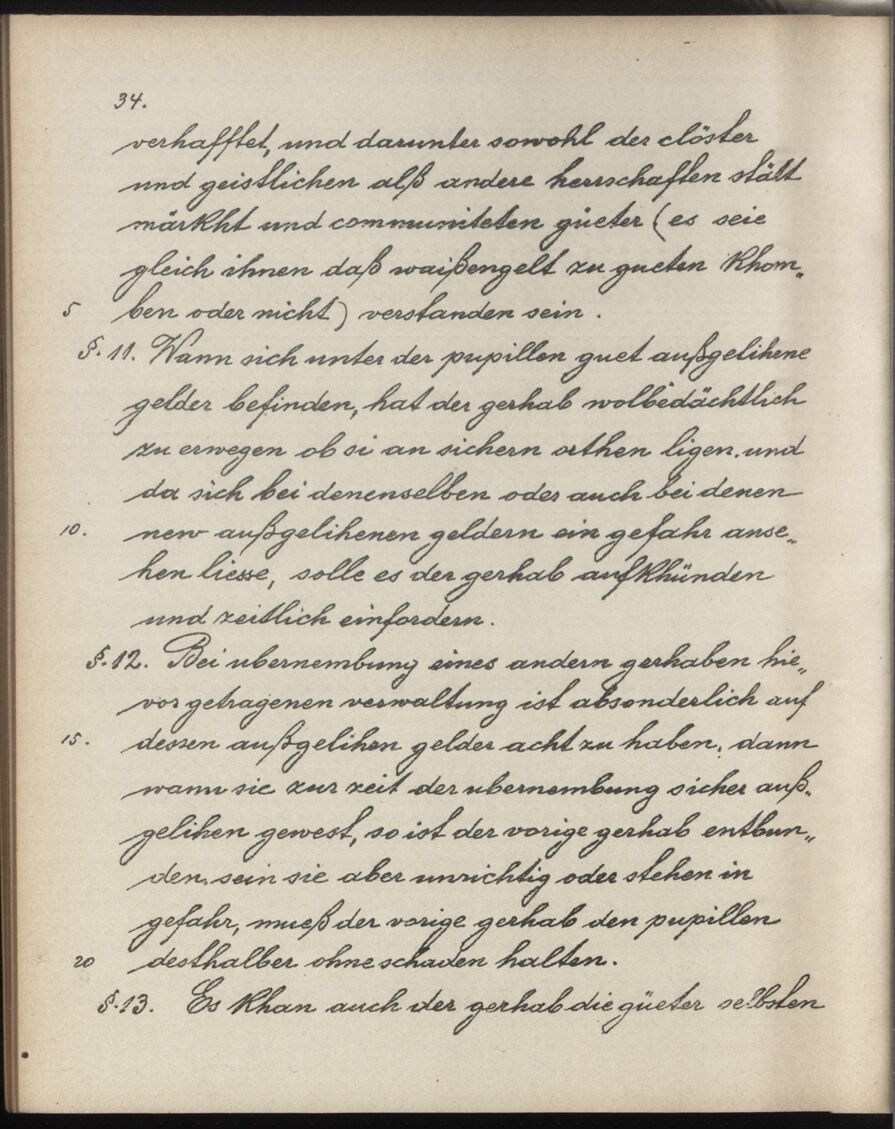 34.
verhafftet, und darunter sowohl der clöster
und geistlichen alß andere herrschaften stätt
märkht und communiteten güeter (es seie
gleich ihnen daß waißengelt zu gueten khom„
5 ben oder nicht) verstanden sein.
§. 11. Wann sich unter der pupillen guet außgelihene
gelder befinden, hat der gerhab wolbedächtlich
zu erwegen ob si an sichern orthen ligen. und
da sich bei denenselben oder auch bei denen
10. new außgelihenen geldern ein gefahr anse„
hen liesse, solle es der gerhab aufkhünden
und zeitlich einfordern.
§. 12. Bei ubernembung eines andern gerhaben hie„
vor getragenen verwaltung ist absonderlich auf
15. dessen außgelihen gelder acht zu haben, dann
wann sie zur zeit der ubernembung sicher auß„
gelihen gewest, so ist der vorige gerhab entbun„
den, sein sie aber unrichtig oder stehen in
gefahr, mueß der vorige gerhab den pupillen
20 desthalber ohne schaden halten.
§. 13. Es khan auch der gerhab die güeter selbsten